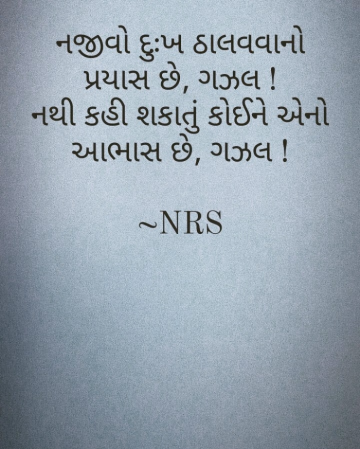 નજીવો દુઃખ ઠાલવવાનો
પ્રયાસ છે, ગઝલ !
નથી કહી શકાતું કોઈને એનો
આભાસ છે, ગઝલ !
~NRS